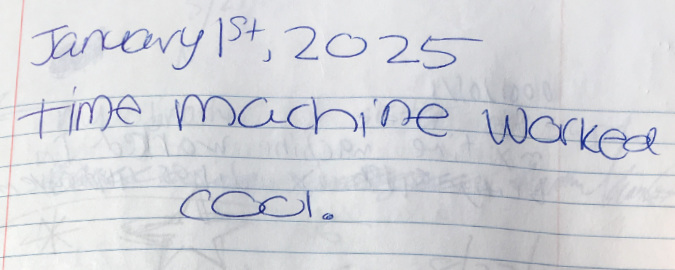 January 1st, 2025
time machine worked
cool.